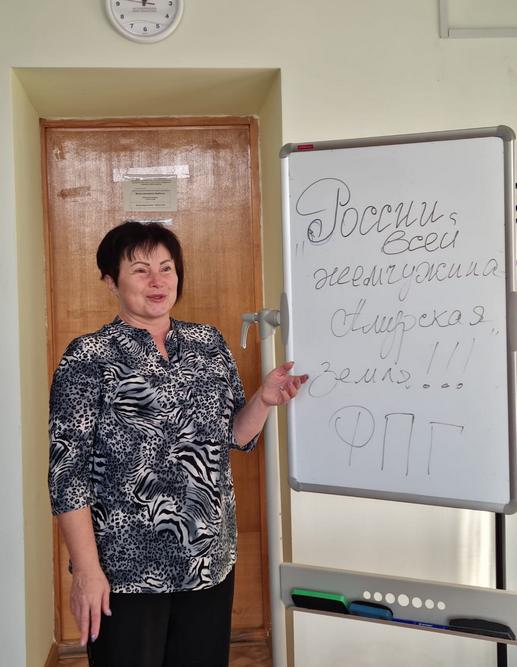 „России,
всей
жемчужина -
Амурская
Земля"!!!
ФПГ